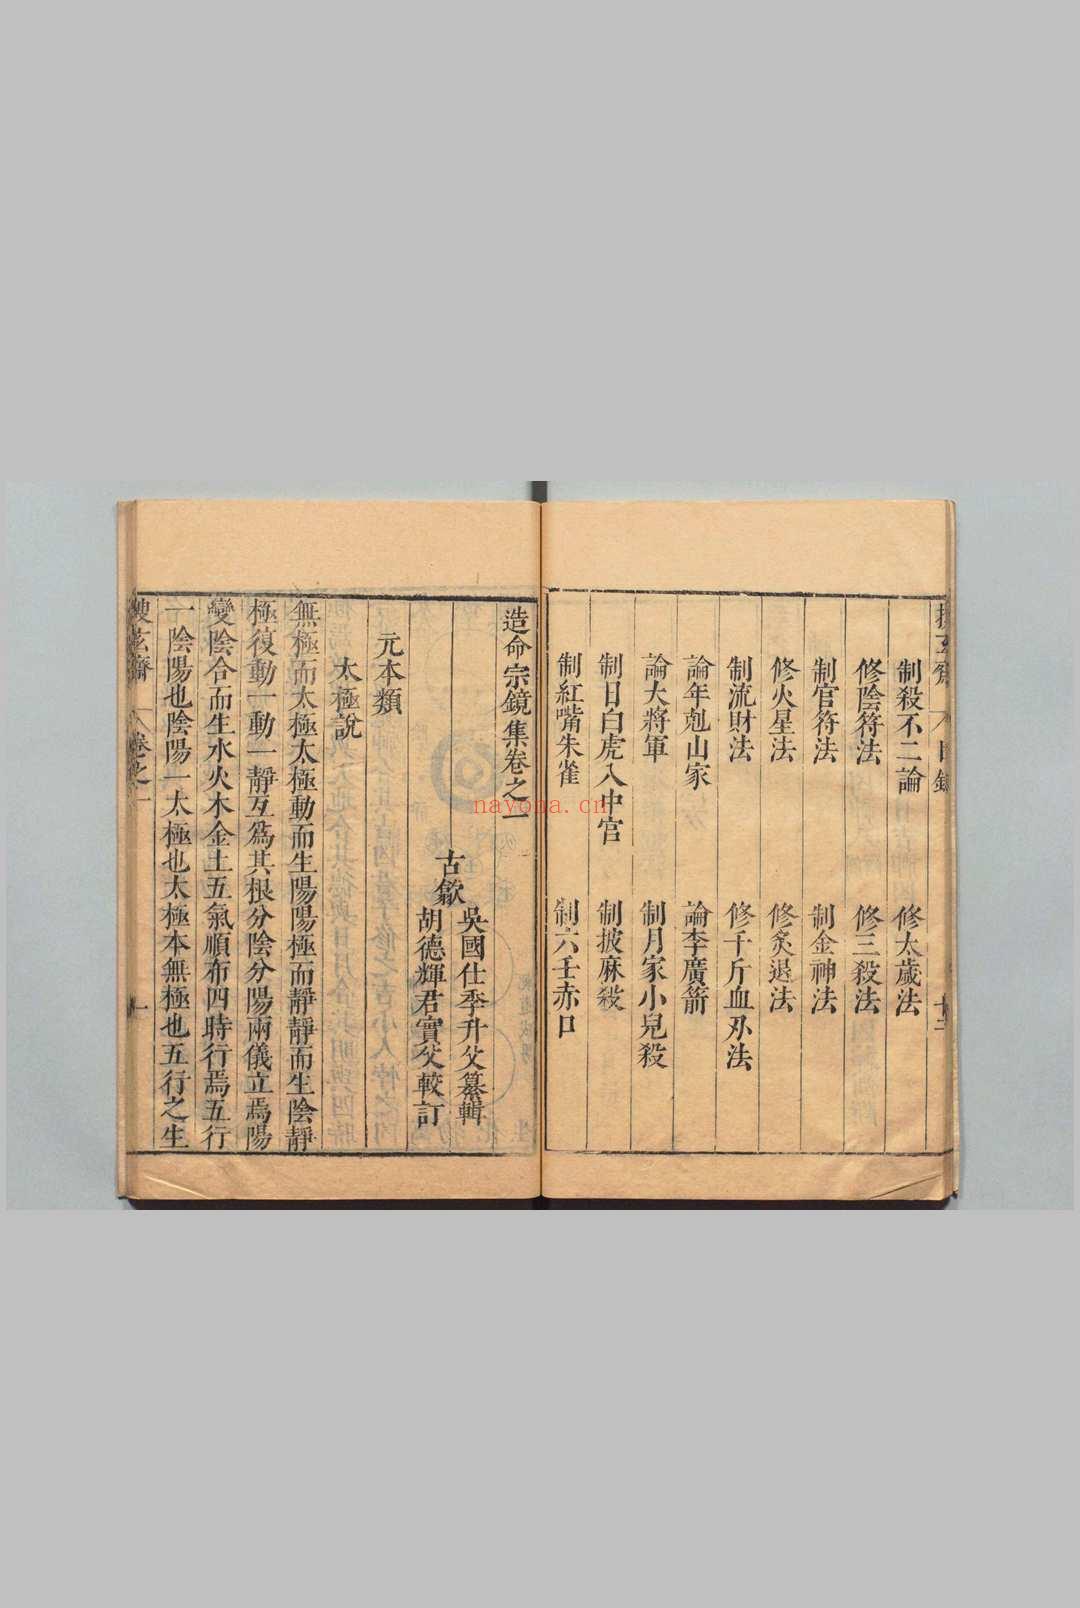 制殺不二論　修太歲法
修陰符法　修三殺法
制官符法　制金神法
修火星法　修炙退法
制流財法　修千斤血刃法
論年剋山家　論李廣箭
論大將軍　制月家小兒殺
制日白虎入中宮　制披麻殺
制紅嘴朱雀　制六壬赤口
造命宗鏡集卷之一
古歙
吳國仕季升父纂輯
胡德輝君實父較訂
元本類
太極說
無極而太極太極動而生陽陽極而靜靜而生陰靜
極復動一動一靜互爲其根分陰分陽兩儀立焉陽
變陰合而生水火木金土五氣順布四時行焉五行
一陰陽也陰陽一太極也太極本無極也五行之生
卷之一　一
nayona.cn